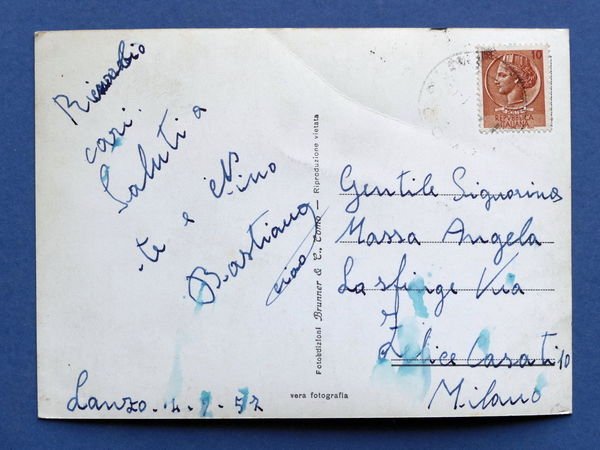 cari.
Saluti a
te e
Bastiano
ciao
Lanzo. 2. 9. 57
Fotoedizioni Brunner & C., Como — Riproduzione vietata
vera fotografia
10
REPUBBLICA
ITALIANA
Gentile Signorina
Massa Angela
La sfinge Via
Felice Casati 10
Milano